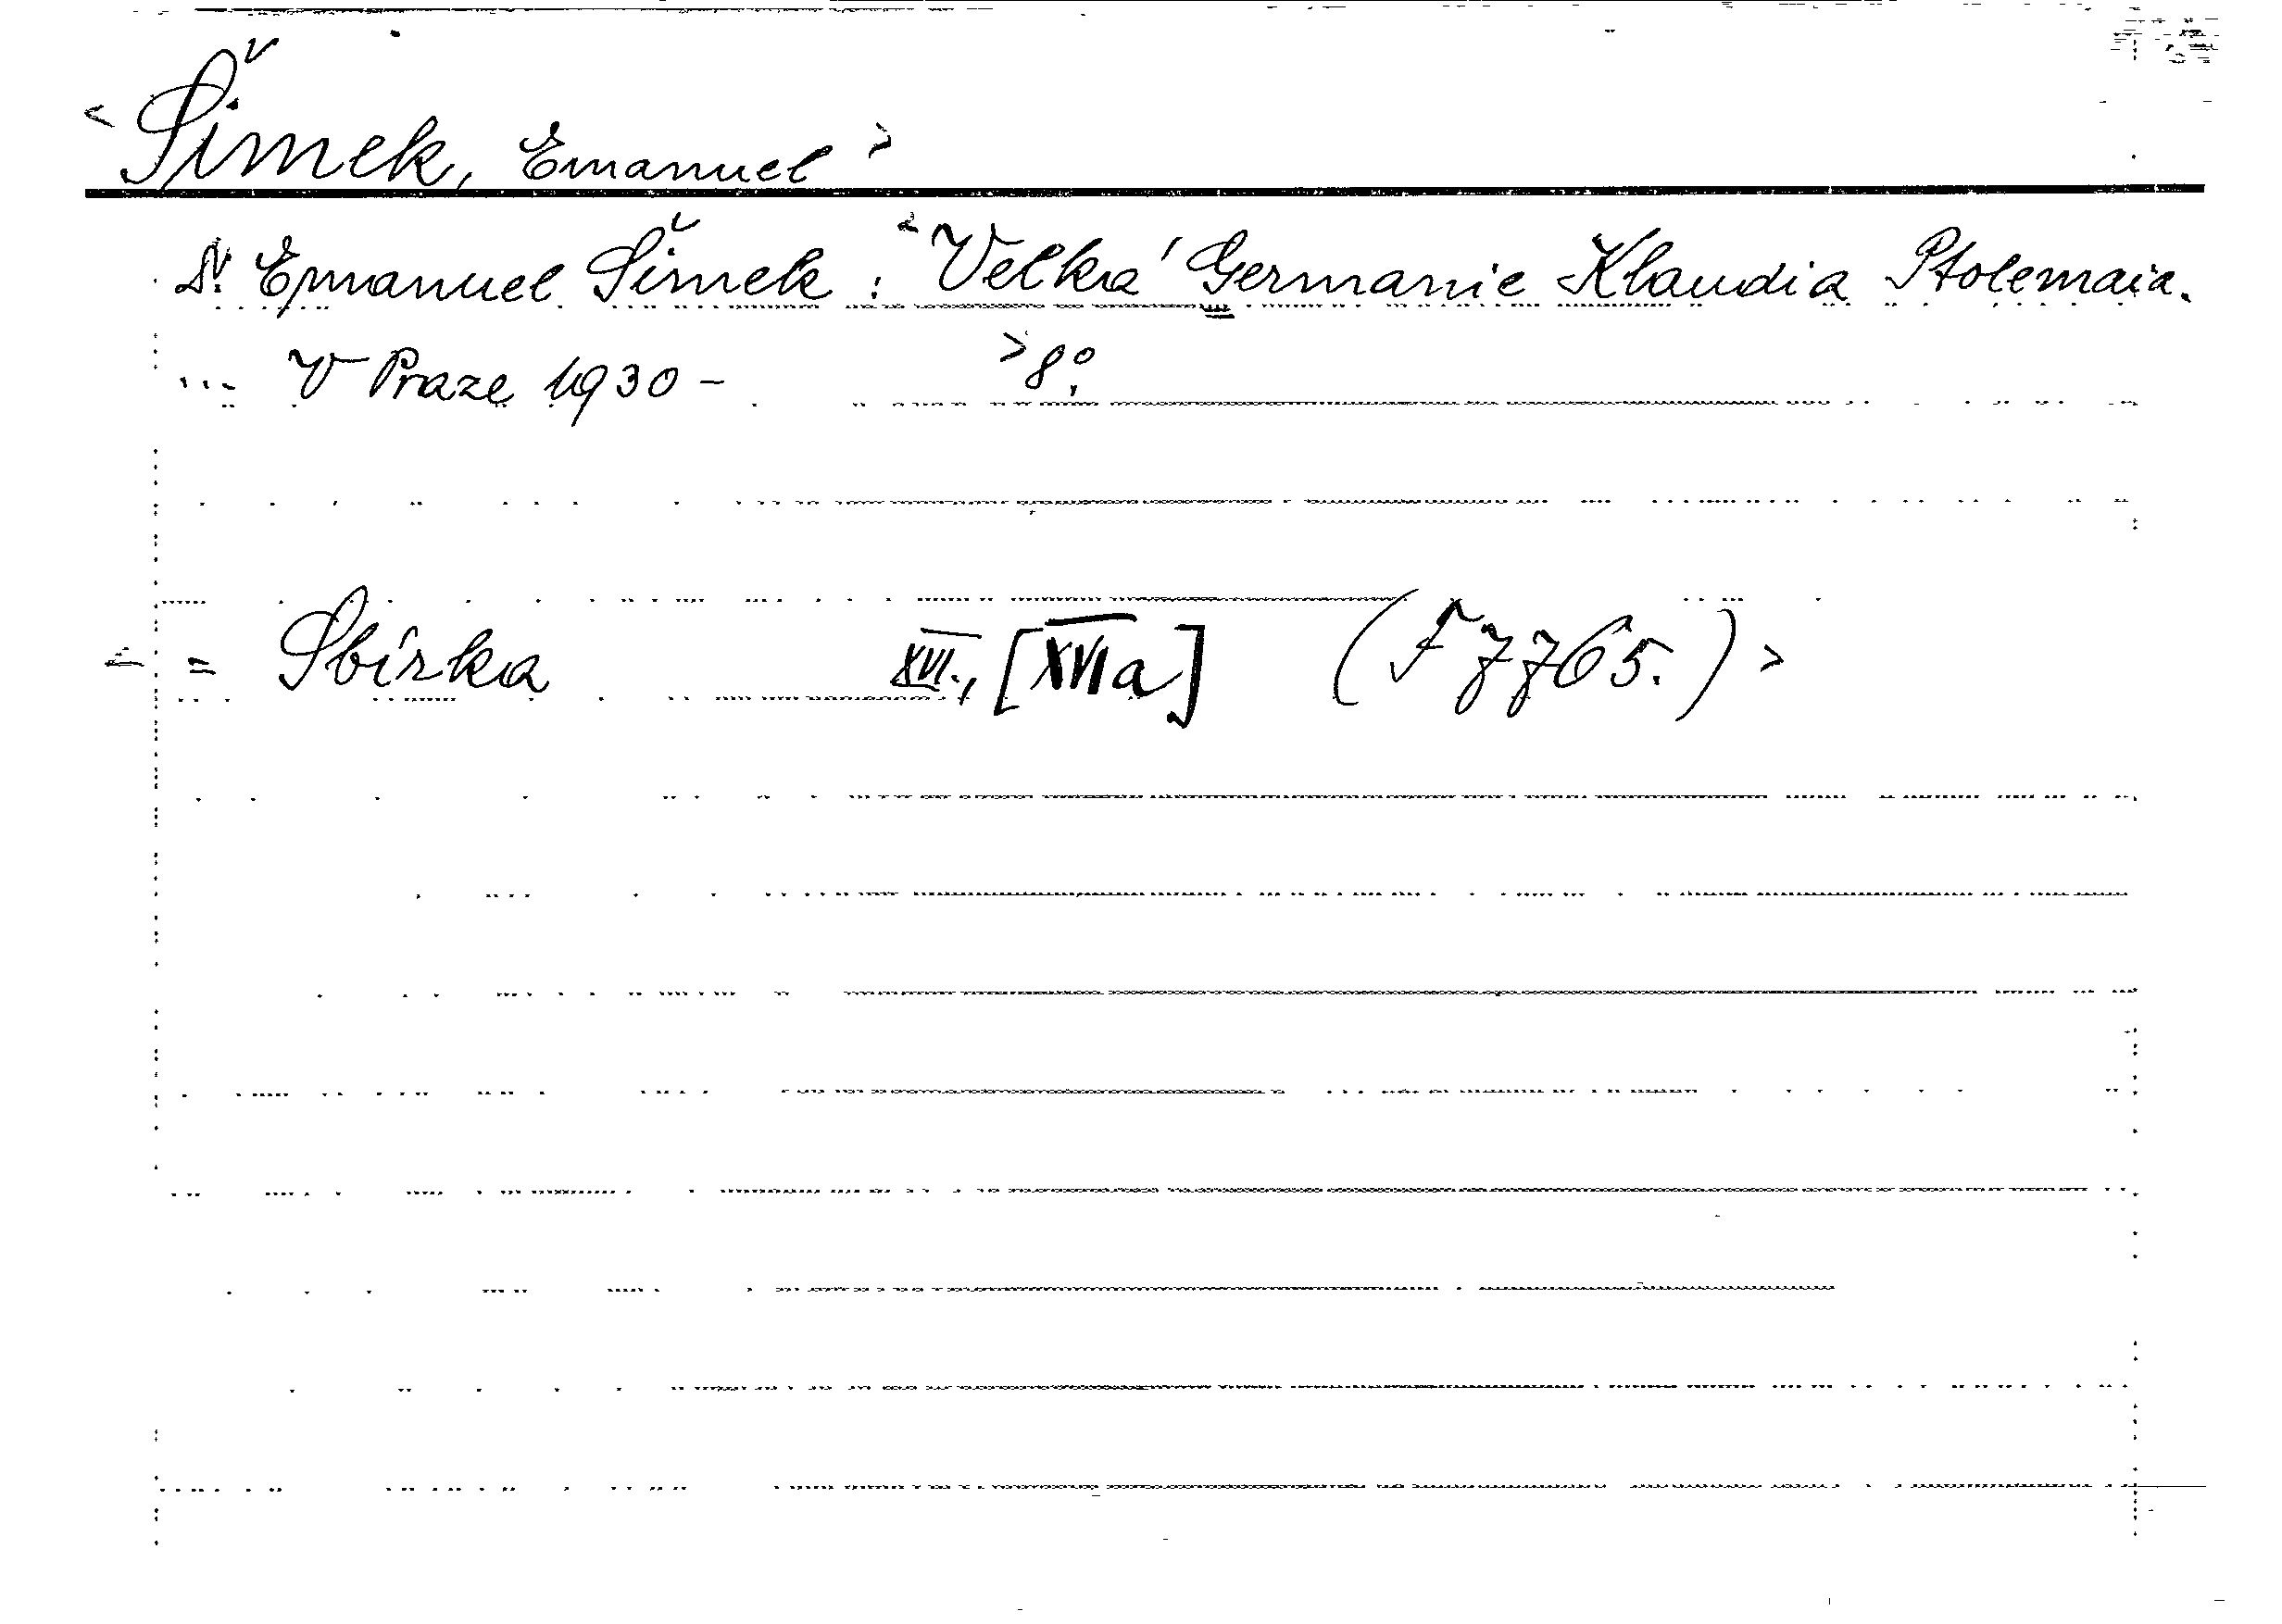 < Šimek, Emanuel >
Dr. Emanuel Šimek: < Velká Germanie Klaudia Ptolemaia.
... V Praze 1930 - > 8°.
< = Sbírka XVI., [XVIa] (F 7765.) >